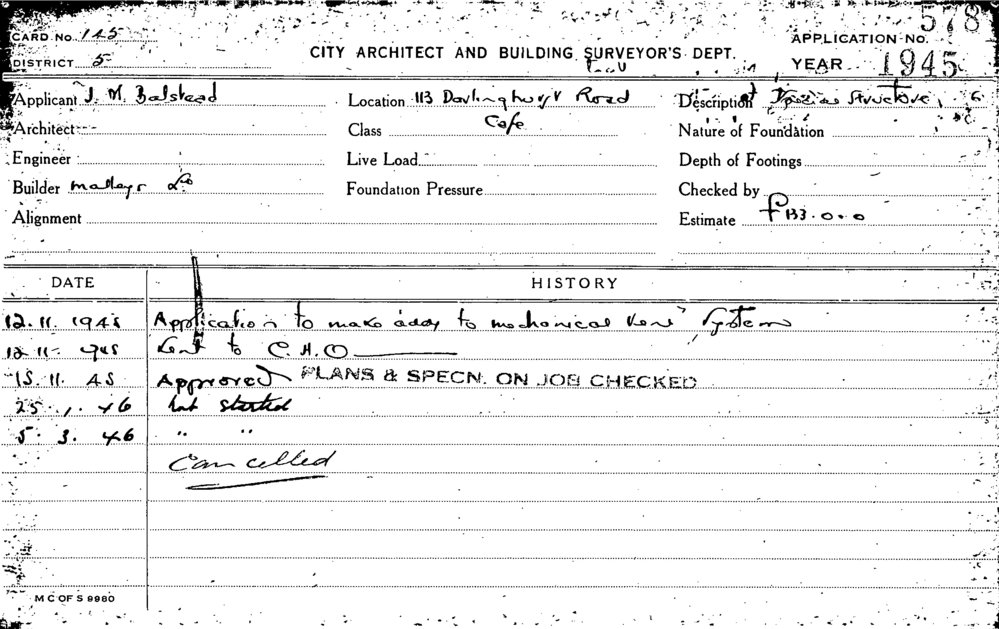 CARD No. 145
578
APPLICATION No.
DISTRICT 5
CITY ARCHITECT AND BUILDING SURVEYOR'S DEPT.
YEAR 1945
Applicant J. M. Balstead
Location 113 Darlinghurst Road
Description Special Structure,
Architect
Class Cafe
Nature of Foundation
Engineer
Live Load
Depth of Footings
Builder Malleys Ld
Foundation Pressure
Checked by
Alignment
Estimate £133.0.0
DATE HISTORY
12.11.1945 Application to make addns to mechanical vent system
12 11 1945 Sent to C.H.O
15.11.45 Approved PLANS & SPECN. ON JOB CHECKED
25.1.46 Not started
5.3.46 " "
Cancelled
M C OF S 9980